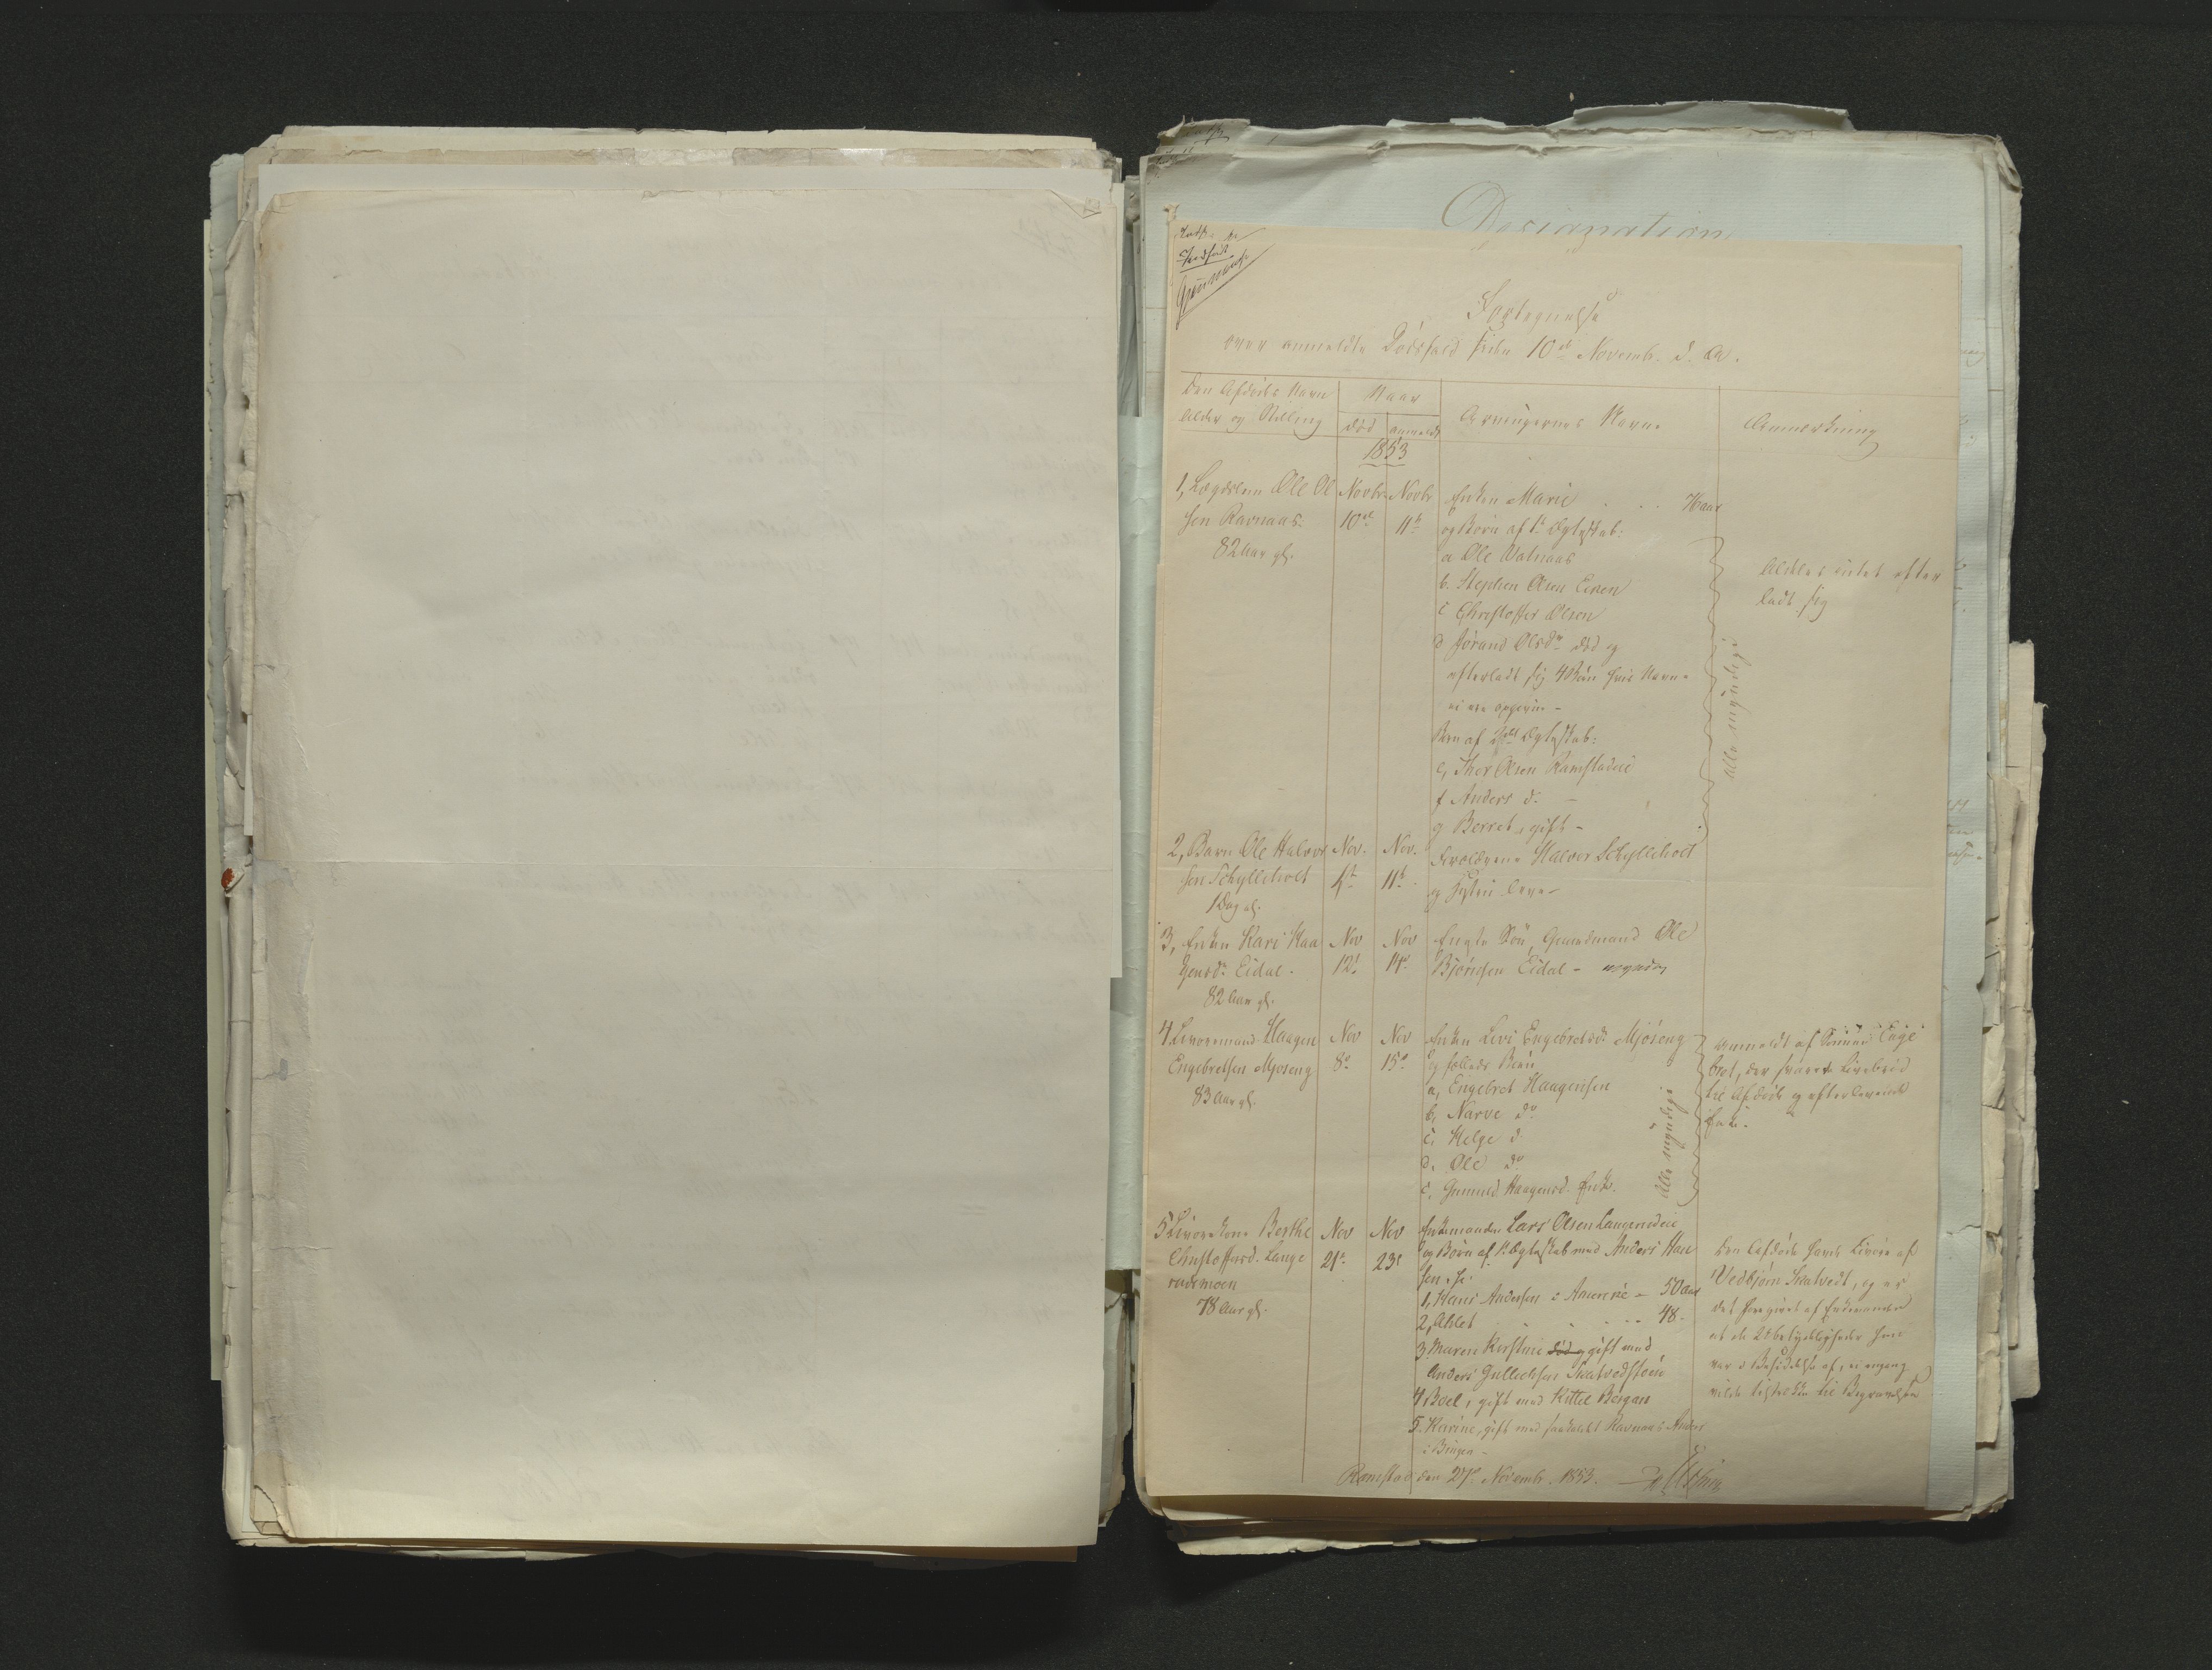 Designation
Fortegnelse
over anmeldte Dødsfald siden 10de Novemb. d. A.
Den Afdødes Navn
Alder og Stilling
Naar
død
anmeldt
Arvingernes Navne
Anmærkning
1853
1, Lægdslem Ole Ol
sen Ravnaas
82 Aar gl.
Novbr
10de
Novbr
11te
Enken Marie . . . . Aar
og Børn af 1te Ægteskab:
a Ole Vatnaas
b. Stephen Olsen
c Christoffer Olsen
d Jørand Olsdr død og
efterladt sig 4 Børn hvis Navne
ei ere opgivne -
Børn af 2det Ægteskab:
e, Thor Olsen Ramstadeie
f Anders do -
g Berret, gift -
alle myndige
Aldeles intet efter
ladt sig
2, Barn Ole Halvor
sen Schylleholt
1 Dag gl.
Nov.
4de
Nov.
11te
Forældrene Halvor Schylleholt
og Hustru leve -
3, Enken Kari Haa
gensdr Eidal.
82 Aar gl.
Nov
12te
Nov
14de
Eneste Søn, Gaardmand Ole
Bjørnsen Eidal - myndig
4. Livøremand Haagen
Engebretsen Mjøseng
83 Aar gl.
Nov
8de
Nov
15de
Enken Levi Engebretsdr Mjøseng
og fælleds Børn
a, Engebret Haagensen
b, Narve do
c, Helge d
d. Ole do
e, Gunnild Haagensd. Enke.
alle myndige
anmeldt af
brot, der svarer Livebrød
til Afdøde og efterlevende
Enke.
5 Livørekone Berthe
Christoffersd. Lange
rudsmoen
78 Aar gl.
Nov
21de
Nov
23de
Enkemanden Lars Olsen Langerudeie
og Børn af 1. Ægteskab med Anders Han
sen
1, Hans Andersen i Amerika - 50 Aar
2, Ahlet . . . . . 48.
3. Maren Kirstine død gift med
Anders Gullichsen
4, Boel, gift med Kittel Bergan
5. Karine, gift med
i Bingen -
Den Afdøde havde Livøre af
Vedbjørn Skatvedt, og er
det foregivet af Enkemanden
at de Ubetydeligheder han
var i Besiddelse af, ei engang
vilde tilstrække til Begravelsen
Ramstad den 27de Novemb. 1853.